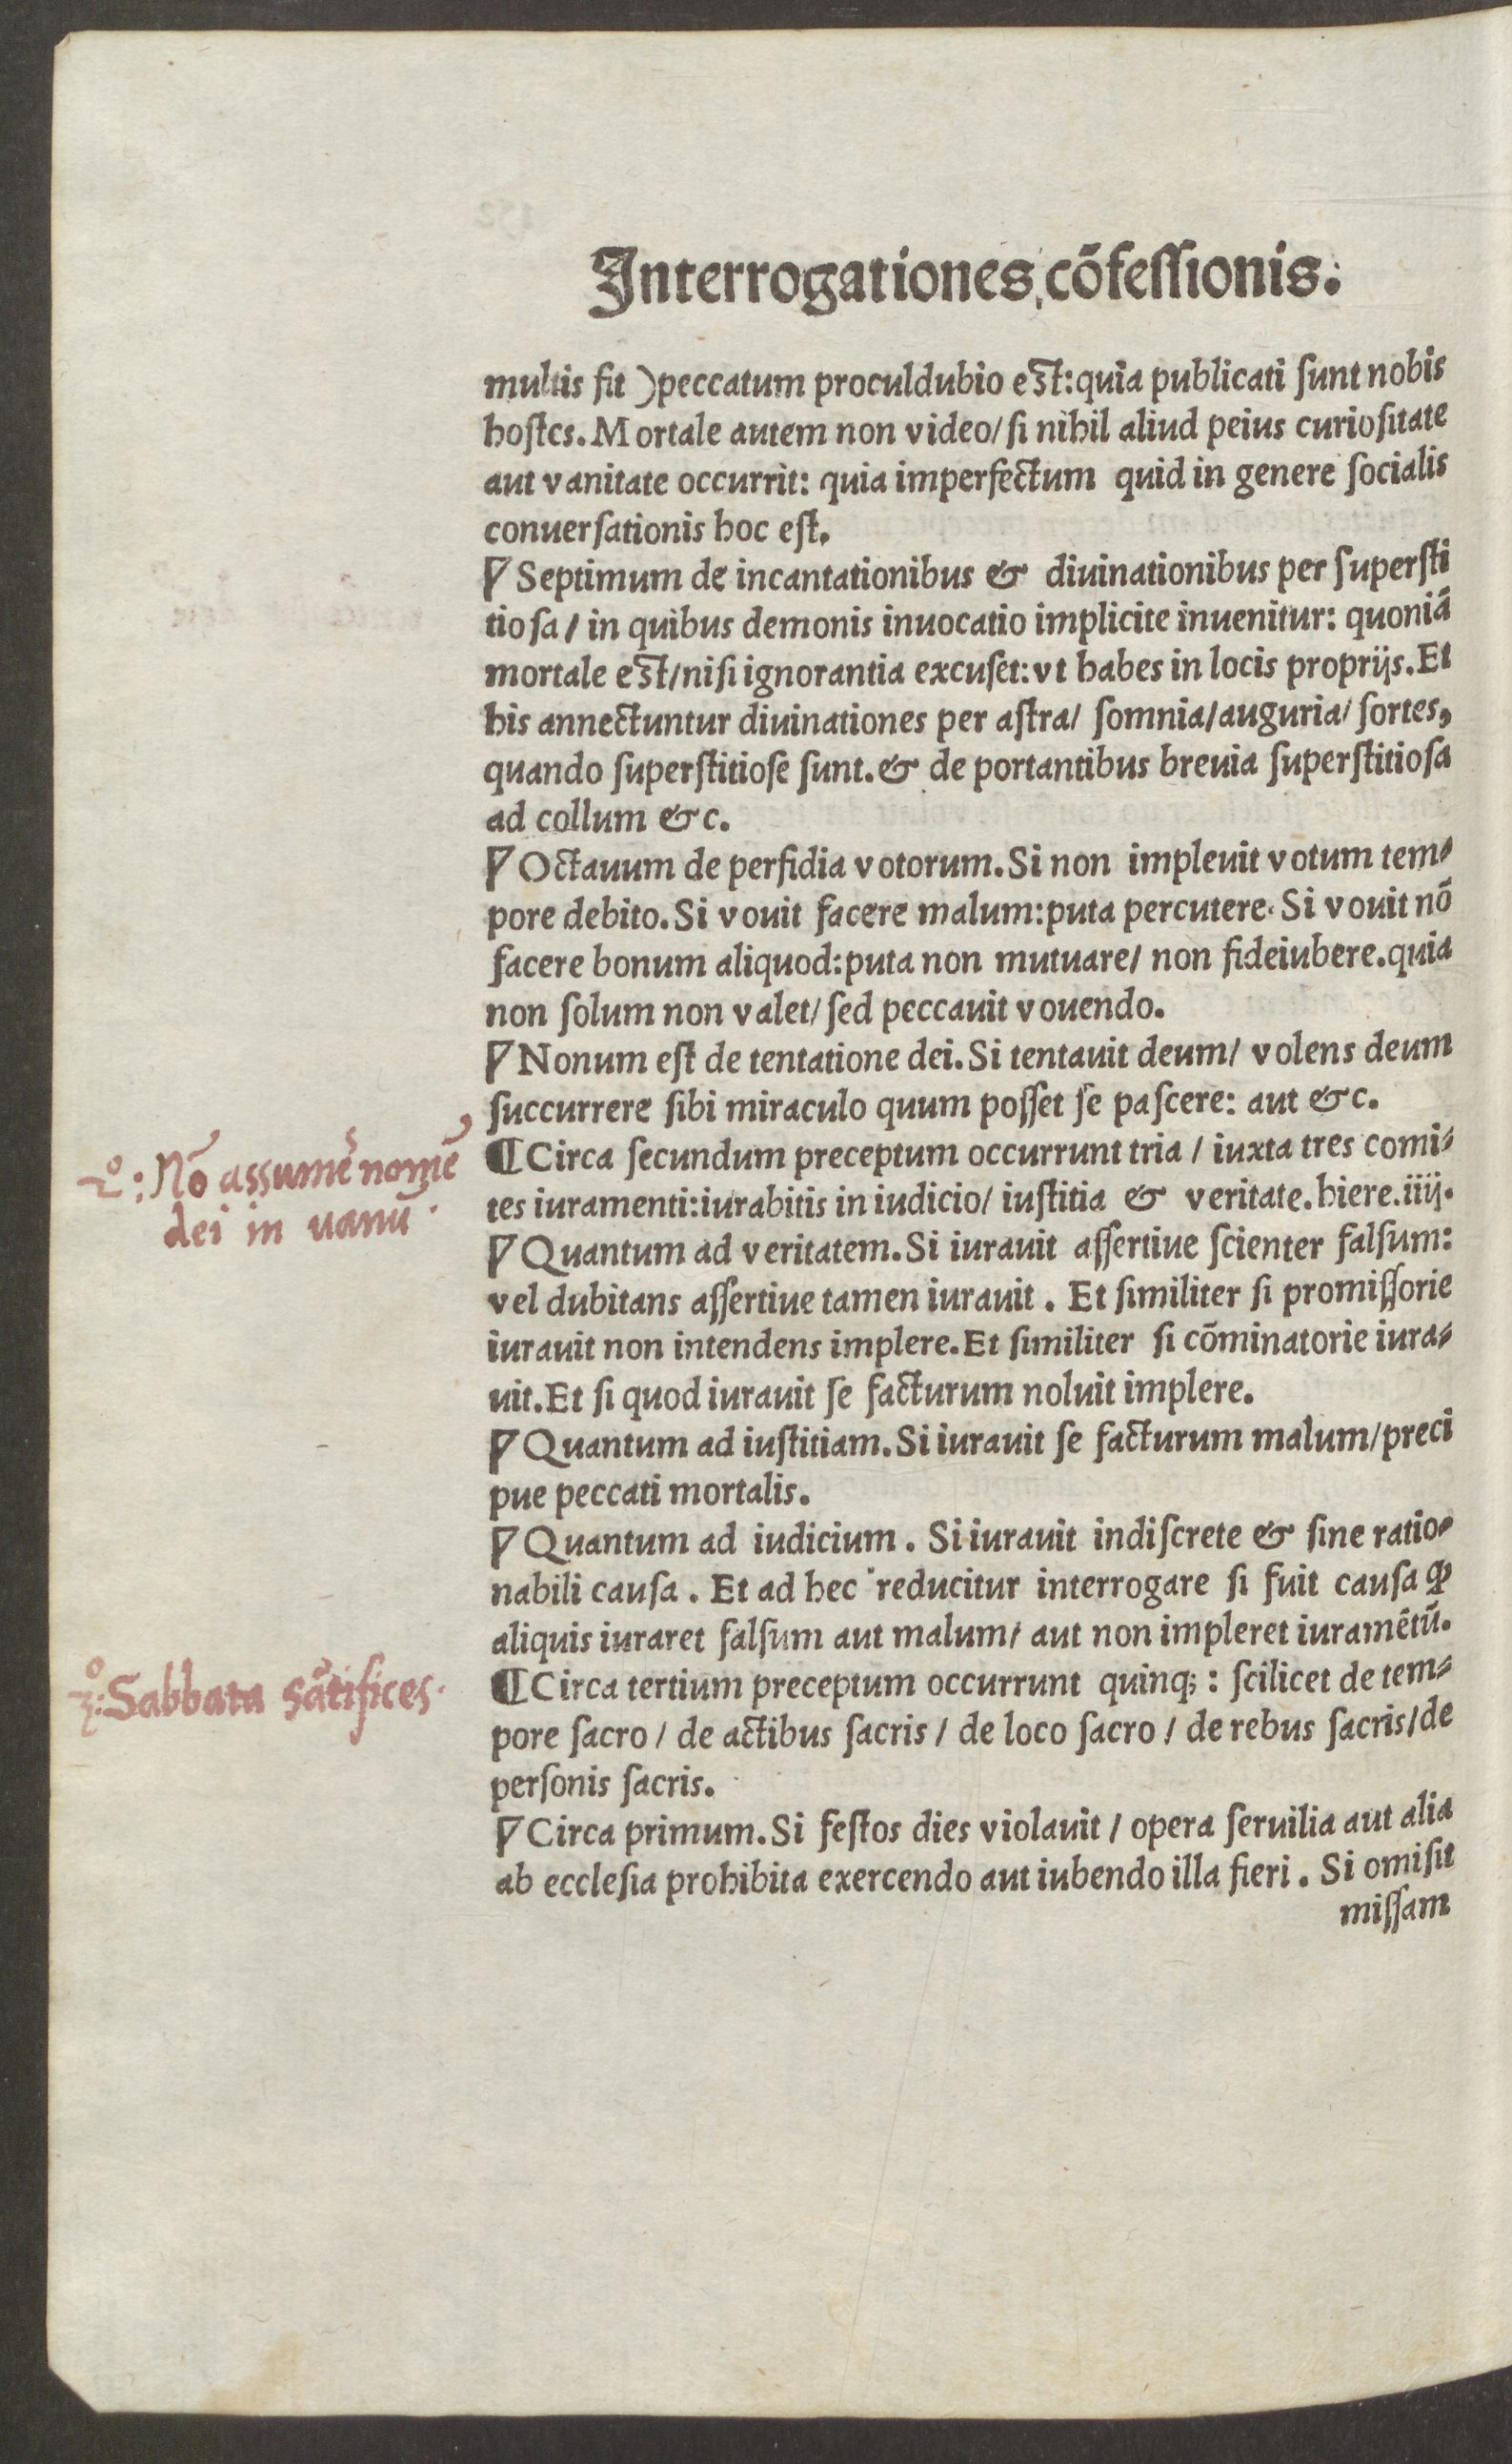 Interrogationes cōfessionis.
multis fit ) peccatum proculdubio est: quia publicati sunt nobis
hostes. Mortale autem non video/ si nihil aliud peius curiositate
aut vanitate occurrit: quia imperfectum quid in genere socialis
conuersationis hoc est.
Septimum de incantationibus & diuinationibus per supersti
tiosa / in quibus demonis inuocatio implicite inuenitur: quoniā
mortale est/ nisi ignorantia excuset: vt habes in locis proprijs. Et
his annectuntur diuinationes per astra/ somnia/ auguria/ sortes,
quando superstitiose sunt. & de portantibus breuia superstitiosa
ad collum &c.
Octauum de perfidia votorum. Si non impleuit votum tem-
pore debito. Si vouit facere malum: puta percutere. Si vouit nō
facere bonum aliquod: puta non mutuare/ non fideiubere. quia
non solum non valet/ sed peccauit vouendo.
Nonum est de tentatione dei. Si tentauit deum/ volens deum
succurrere sibi miraculo quum posset se pascere: aut &c.
2º: Nō assumēs nomē
dei in uanū.
¶ Circa secundum preceptum occurrunt tria / iuxta tres comi-
tes iuramenti: iurabitis in iudicio/ iustitia & veritate. hiere. iiij.
Quantum ad veritatem. Si iurauit assertiue scienter falsum:
vel dubitans assertiue tamen iurauit. Et similiter si promissorie
iurauit non intendens implere. Et similiter si cōminatorie iura-
uit. Et si quod iurauit se facturum noluit implere.
Quantum ad iustitiam. Si iurauit se facturum malum/ preci
pue peccati mortalis.
Quantum ad iudicium. Si iurauit indiscrete & sine ratio-
nabili causa. Et ad hec reducitur interrogare si fuit causa ꝙ
aliquis iuraret falsum aut malum/ aut non impleret iuramētū.
3º: Sabbata sātifices.
¶ Circa tertium preceptum occurrunt quinq;: scilicet de tem-
pore sacro / de actibus sacris / de loco sacro / de rebus sacris/ de
personis sacris.
Circa primum. Si festos dies violauit / opera seruilia aut alia
ab ecclesia prohibita exercendo aut iubendo illa fieri. Si omisit
missam